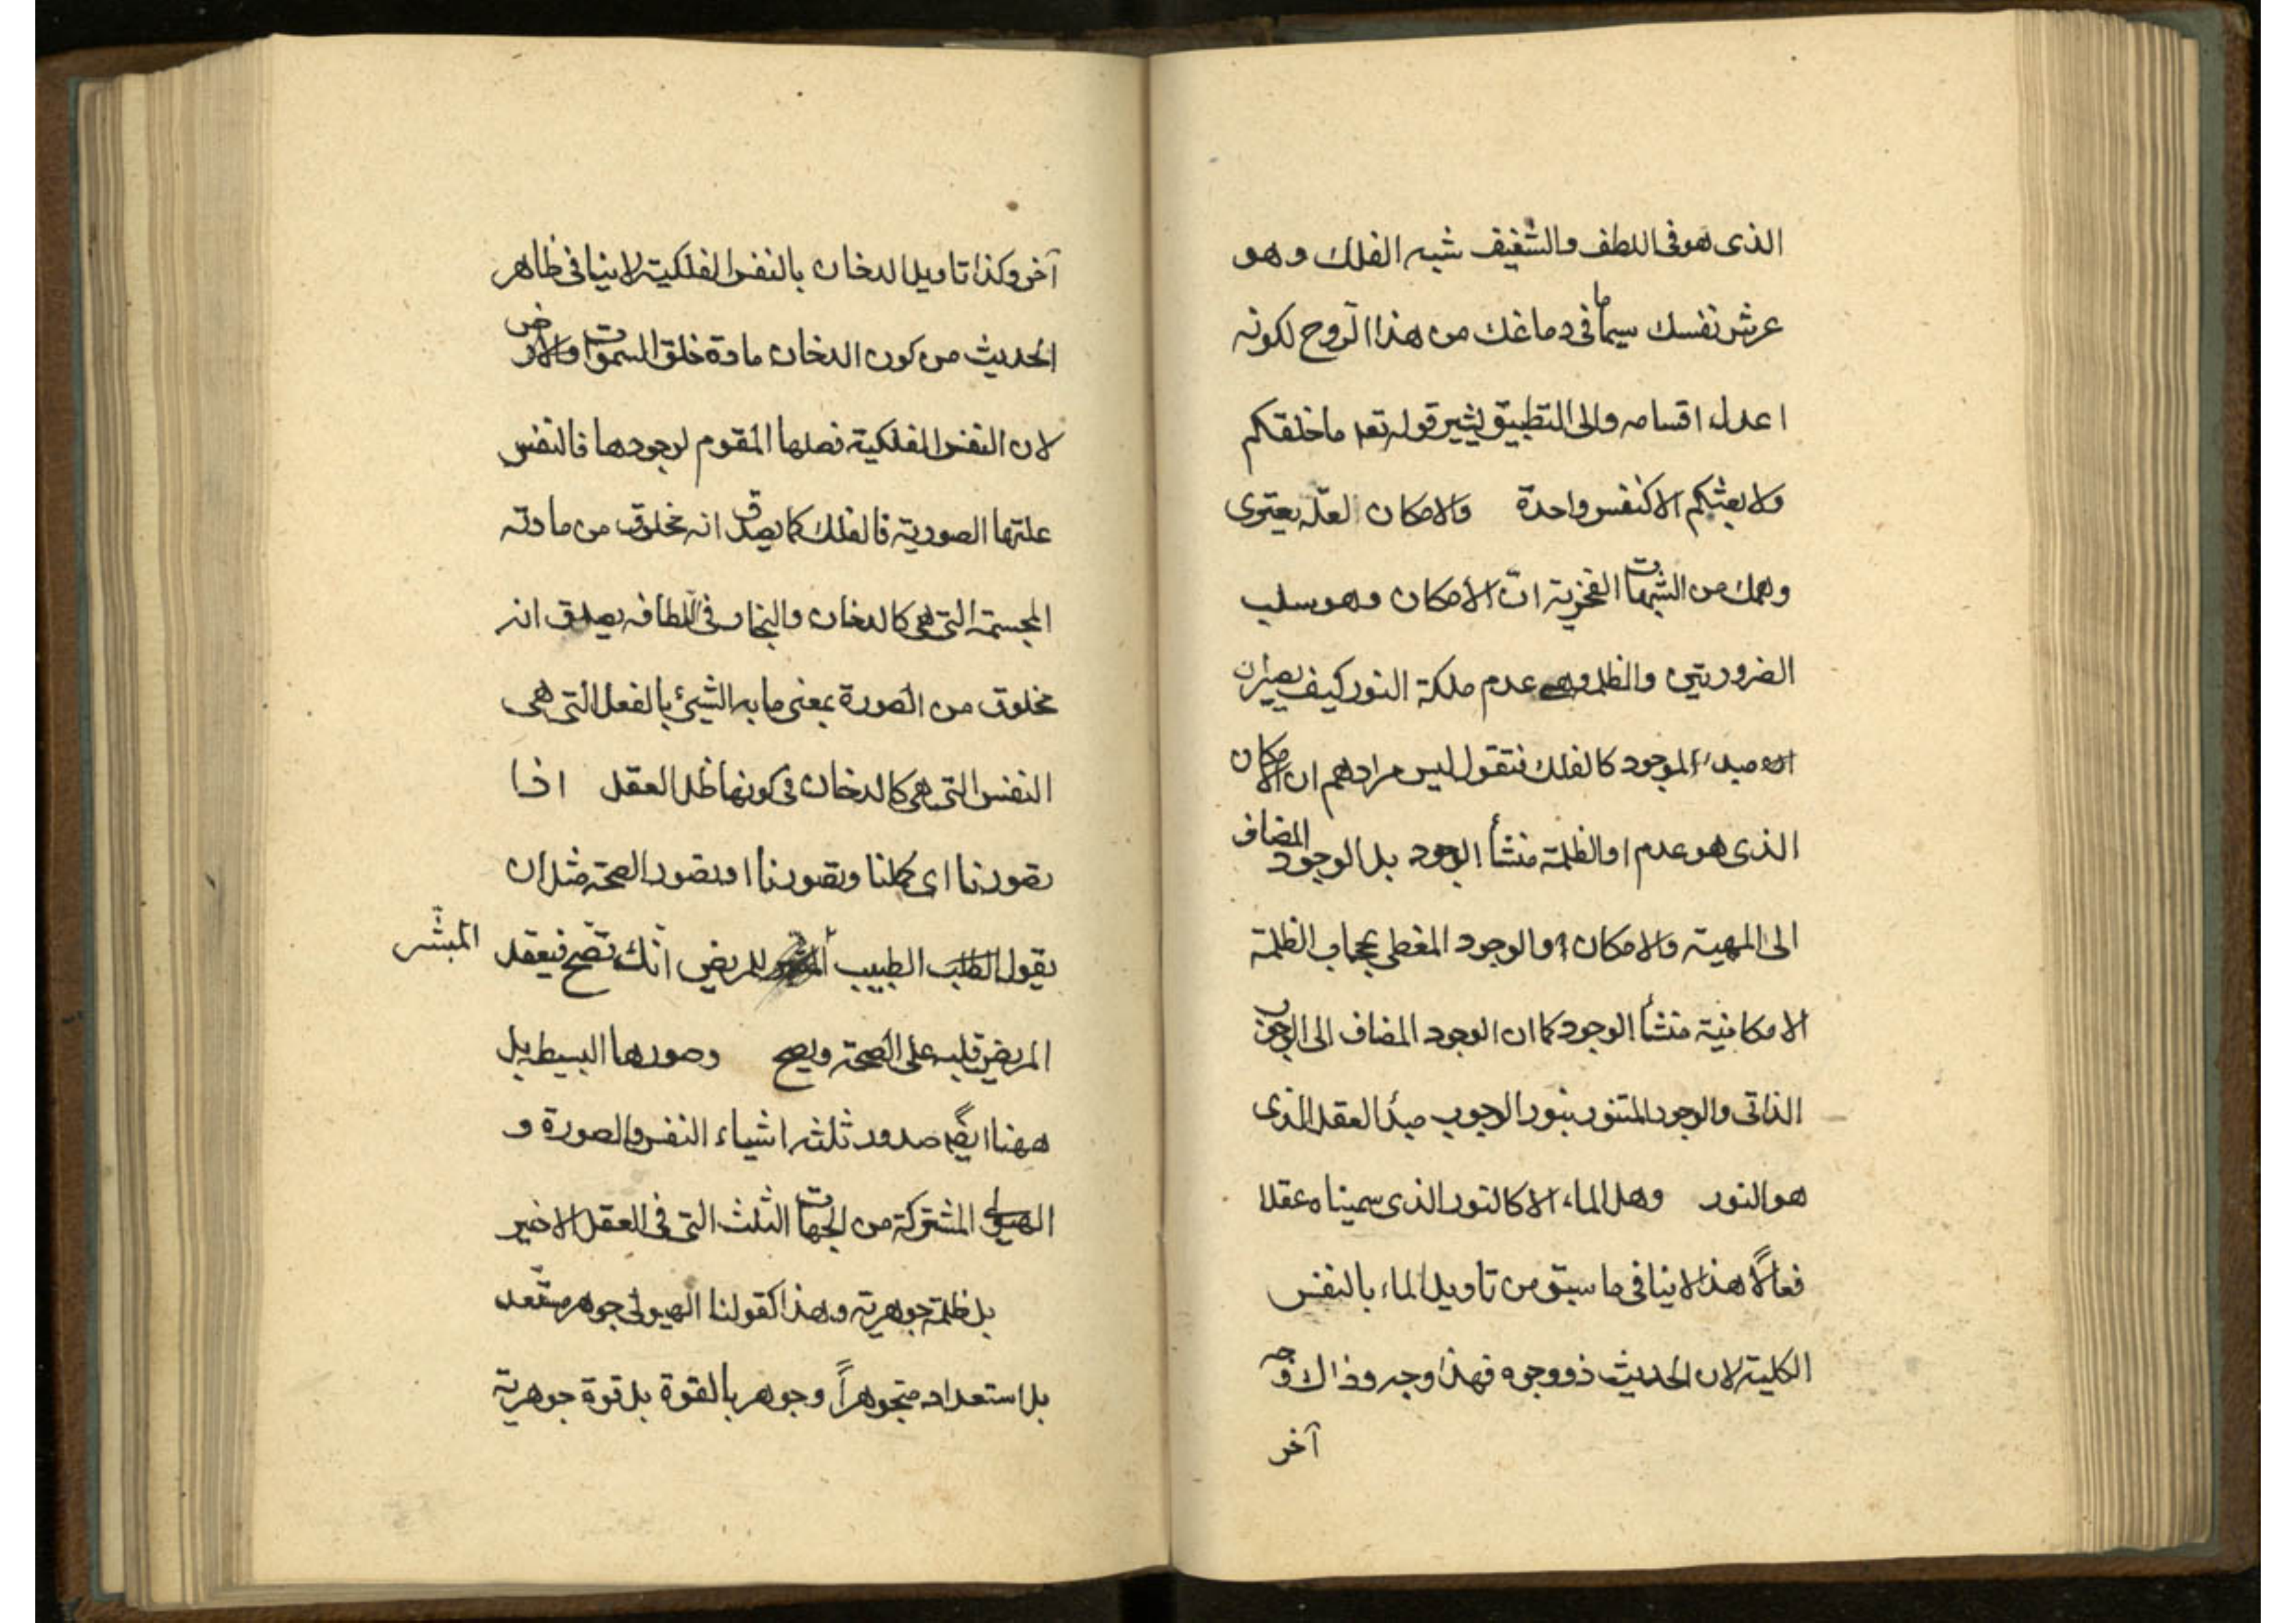 الذى هو فى اللطف والشفيف شبه الفلك وهو
عرش نفسك سيما ما فى دماغك من هذا الروح لكونه
اعدل اقسامه والى التطبيق يشير قوله تعه ما خلقكم
ولا بعثكم الا كنفس واحدة والامكان لعلّه يعترى
وهمك من الشبهات الفخرية انّ الأمكان وهو سلب
الضرورتين والظلمة وهى عدم ملكة النور كيف يصيران
مبدء الموجود كالفلك فنقول ليس مرادهم ان الامكان
الذى هو عدم او الظلمة منشأ الوجود بل الوجود المضاف
الى المهية والامكان او الوجود المغطى بحجاب الظلمة
الامكانية منشأ الوجود كما ان الوجود المضاف الى الوجوب
الذاتى والوجود المتنور بنور الوجوب مبدأ العقل الذى
هو النور وهل الماء الا كالنور الذى سميناه عقلا
فعالاً هذا لا ينافى ما سبق من تاويل الماء بالنفس
الكلية لان الحديث ذو وجوه فهذا وجه وذاك وجه
آخر
آخر وكذا تاويل الدخان بالنفس الفلكية لا ينافى ظاهر
الحديث من كون الدخان مادة خلق السموات والارض
لان النفس الفلكية فصلها المقوم لوجودها فالنفس
علتها الصورية فالفلك كما يصدق انه مخلوق من مادته
المجسمة التى هى كالدخان والبخار فى اللطافه يصدق انه
مخلوق من الصورة بمعنى ما به الشيئ بالفعل التى هى
النفس التى هى كالدخان فى كونها ظل العقل اذا
تصورنا اى كملنا وتصورنا او تصور الصحة مثل ان
يقول الطبيب المبشّر للمريض انّك تصّح فيعقد
المريض قلبه على الصحة ويصح وصورها البسيط بل
ههنا ايضً صدور ثلثه اشياء النفس والصورة و
الهيولى المشتركة من الجهات الثلث التى فى العقل الاخير
بل ظلمة جوهرية وهذا كقولنا الهيولى جوهر مستعد
بل استعداد متجوهراً وجوهر بالقوة بل قوة جوهرية